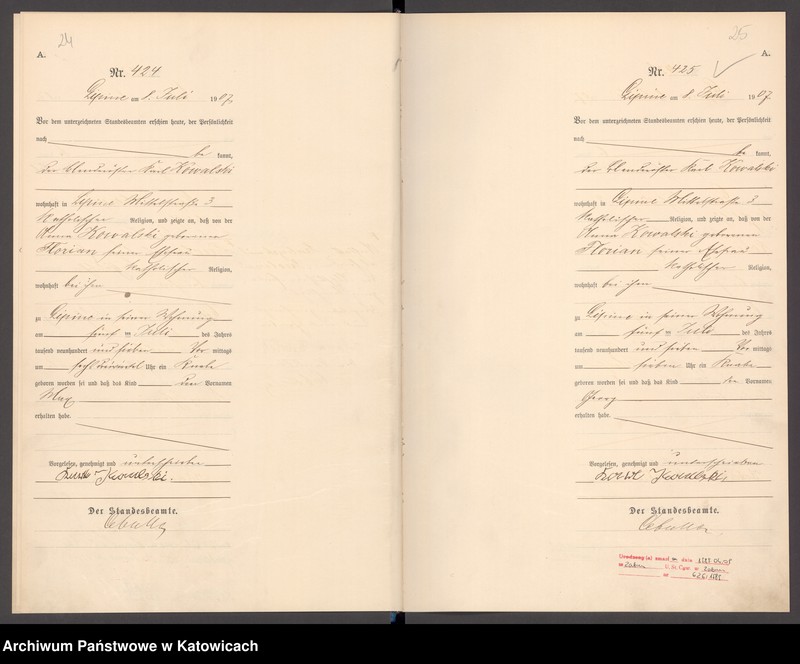 24
A.
Nr. 424
Lipine am 8. Juli 1907
Vor dem unterzeichneten Standesbeamten erschien heute, der Persönlichkeit
nach
be kannt,
der Karl Kowalski
wohnhaft in Lipine 3
Katholischer Religion, und zeigte an, daß von der
Anna Kowalski geborenen
Florian seiner Ehefrau
Katholischer Religion,
wohnhaft bei ihm
zu Lipine in seiner Wohnung
am fünf ten Juli des Jahres
tausend neunhundert und sieben Vor mittags
um Uhr ein Knabe
geboren worden sei und daß das Kind den Vornamen
Max
erhalten habe.
Vorgelesen, genehmigt und unterschrieben
Kowalski.
Der Standesbeamte.
25
A.
Nr. 425
Lipine am 8. Juli 1907
Vor dem unterzeichneten Standesbeamten erschien heute, der Persönlichkeit
nach
be kannt,
der Karl Kowalski
wohnhaft in Lipine 3
Katholischer Religion, und zeigte an, daß von der
Anna Kowalski geborenen
Florian seiner Ehefrau
Katholischer Religion,
wohnhaft bei ihm
zu Lipine in seiner Wohnung
am fünf ten Juli des Jahres
tausend neunhundert und sieben Vor mittags
um sieben Uhr ein Knabe
geboren worden sei und daß das Kind den Vornamen
Georg
erhalten habe.
Vorgelesen, genehmigt und unterschrieben
Kowalski
Der Standesbeamte.
dnia
w U.S.C. w
nr
Archiwum Państwowe w Katowicach